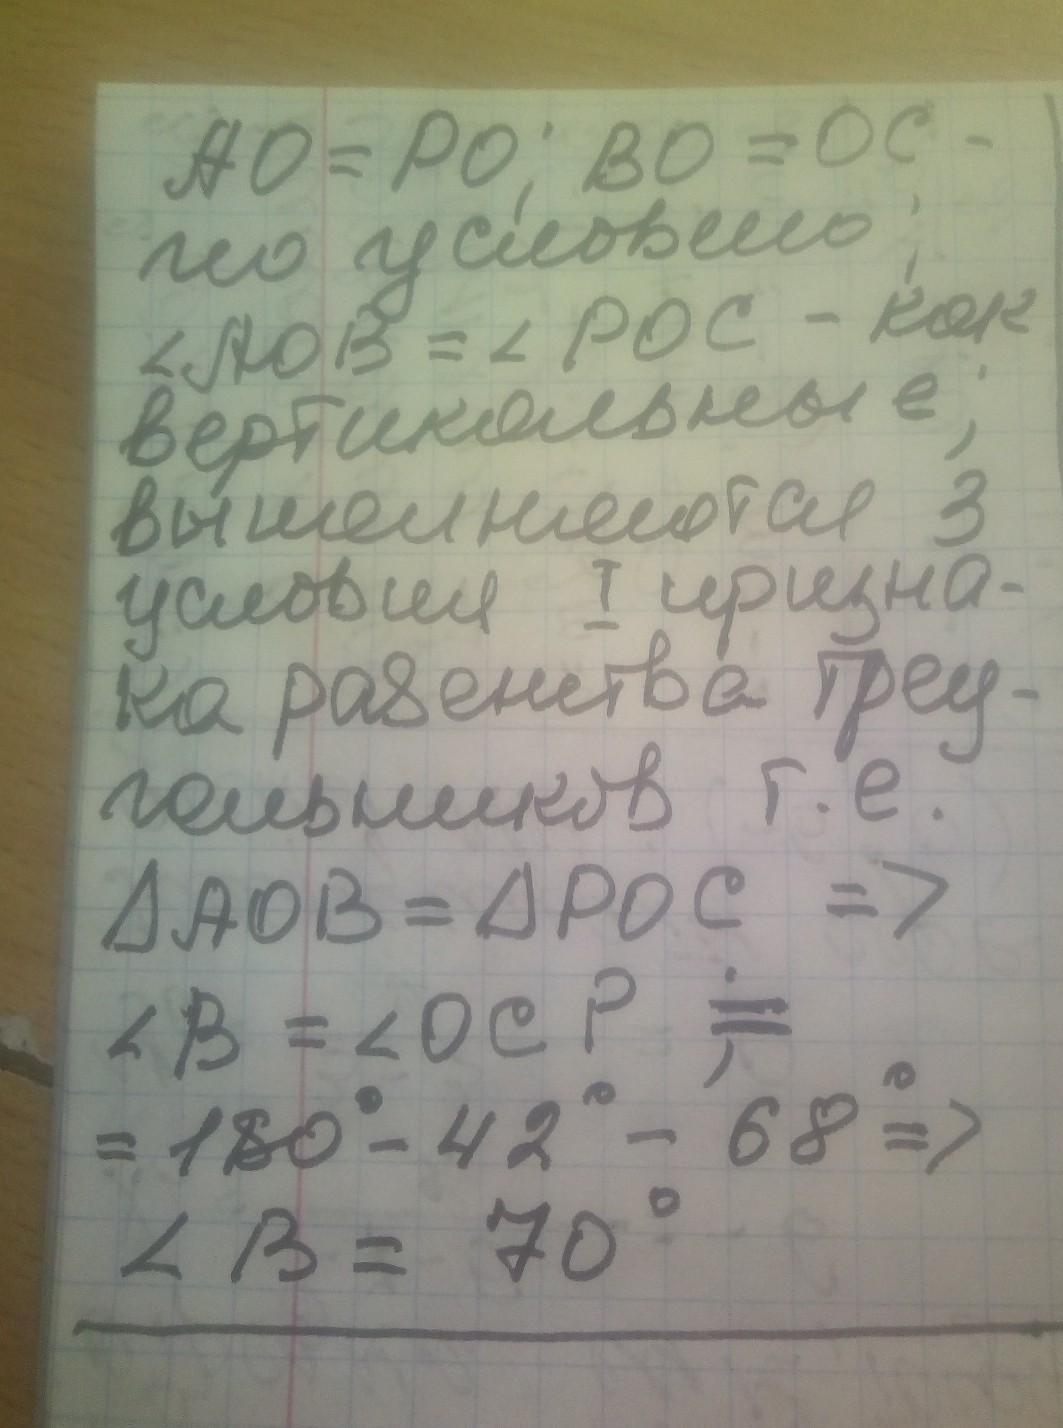 AO = PO; BO = OC -
по условию;
∠AOB = ∠POC - как
вертикальные;
выполняются 3
условия I призна-
ка равенства треу-
гольников т.е.
ΔAOB = ΔPOC =>
∠B = ∠OCP =
= 180° - 42° - 68° =>
∠B = 70°